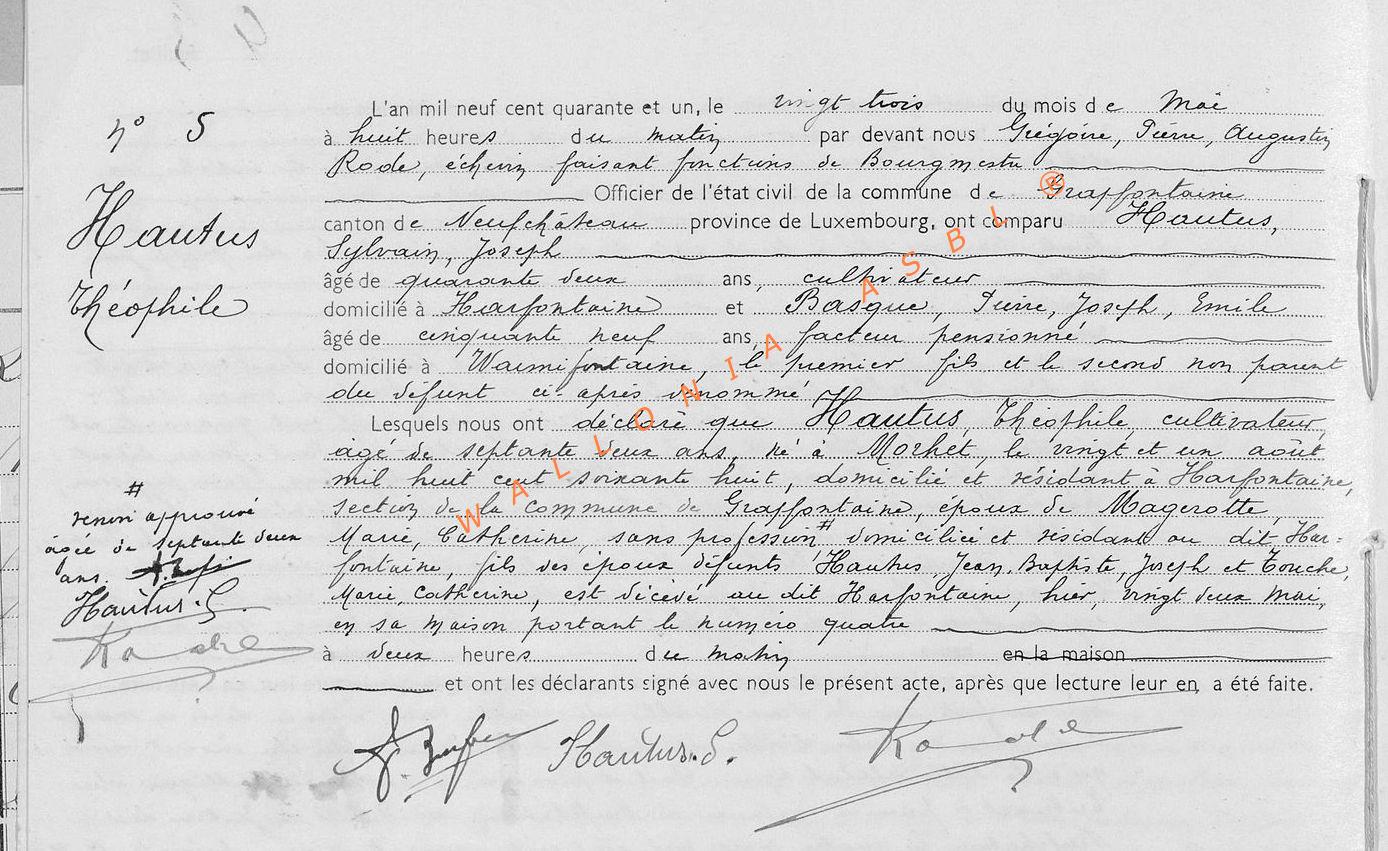 N° 5
Hautus
Théophile
L'an mil neuf cent quarante et un, le vingt trois du mois de Mai
à huit heures du matin par devant nous Grégoire, Pierre, Augustin
Rode, échevin faisant fonctions de Bourgmestre
Officier de l'état civil de la commune de Graffontaine
canton de Neufchâteau province de Luxembourg, ont comparu Hautus,
Sylvain, Joseph
âgé de quarante deux ans, cultivateur
domicilié à Harfontaine et Basque, Pierre, Joseph, Emile
âgé de cinquante neuf ans, facteur pensionné
domicilié à Warmifontaine, le premier fils et le second non parent
du défunt ci-après dénommé
Lesquels nous ont déclaré que Hautus, Théophile cultivateur,
âgé de septante deux ans, né à Morhet, le vingt et un août
mil huit cent soixante huit, domicilié et résidant à Harfontaine,
section de la commune de Graffontaine, époux de Magerotte,
Marie, Catherine, sans profession # domiciliée et résidant au dit Har=
fontaine, fils des époux défunts Hautus, Jean, Baptiste, Joseph et Touche,
Marie, Catherine, est décédé au dit Harfontaine, hier, vingt deux mai,
en sa maison portant le numéro quatre
à deux heures du matin en la maison
et ont les déclarants signé avec nous le présent acte, après que lecture leur en a été faite.
#
renvoi approuvé
âgée de septante deux
ans.
Hautus.S.
Rode
Hautus.S.
Rode
WALLONIA ASBL ®